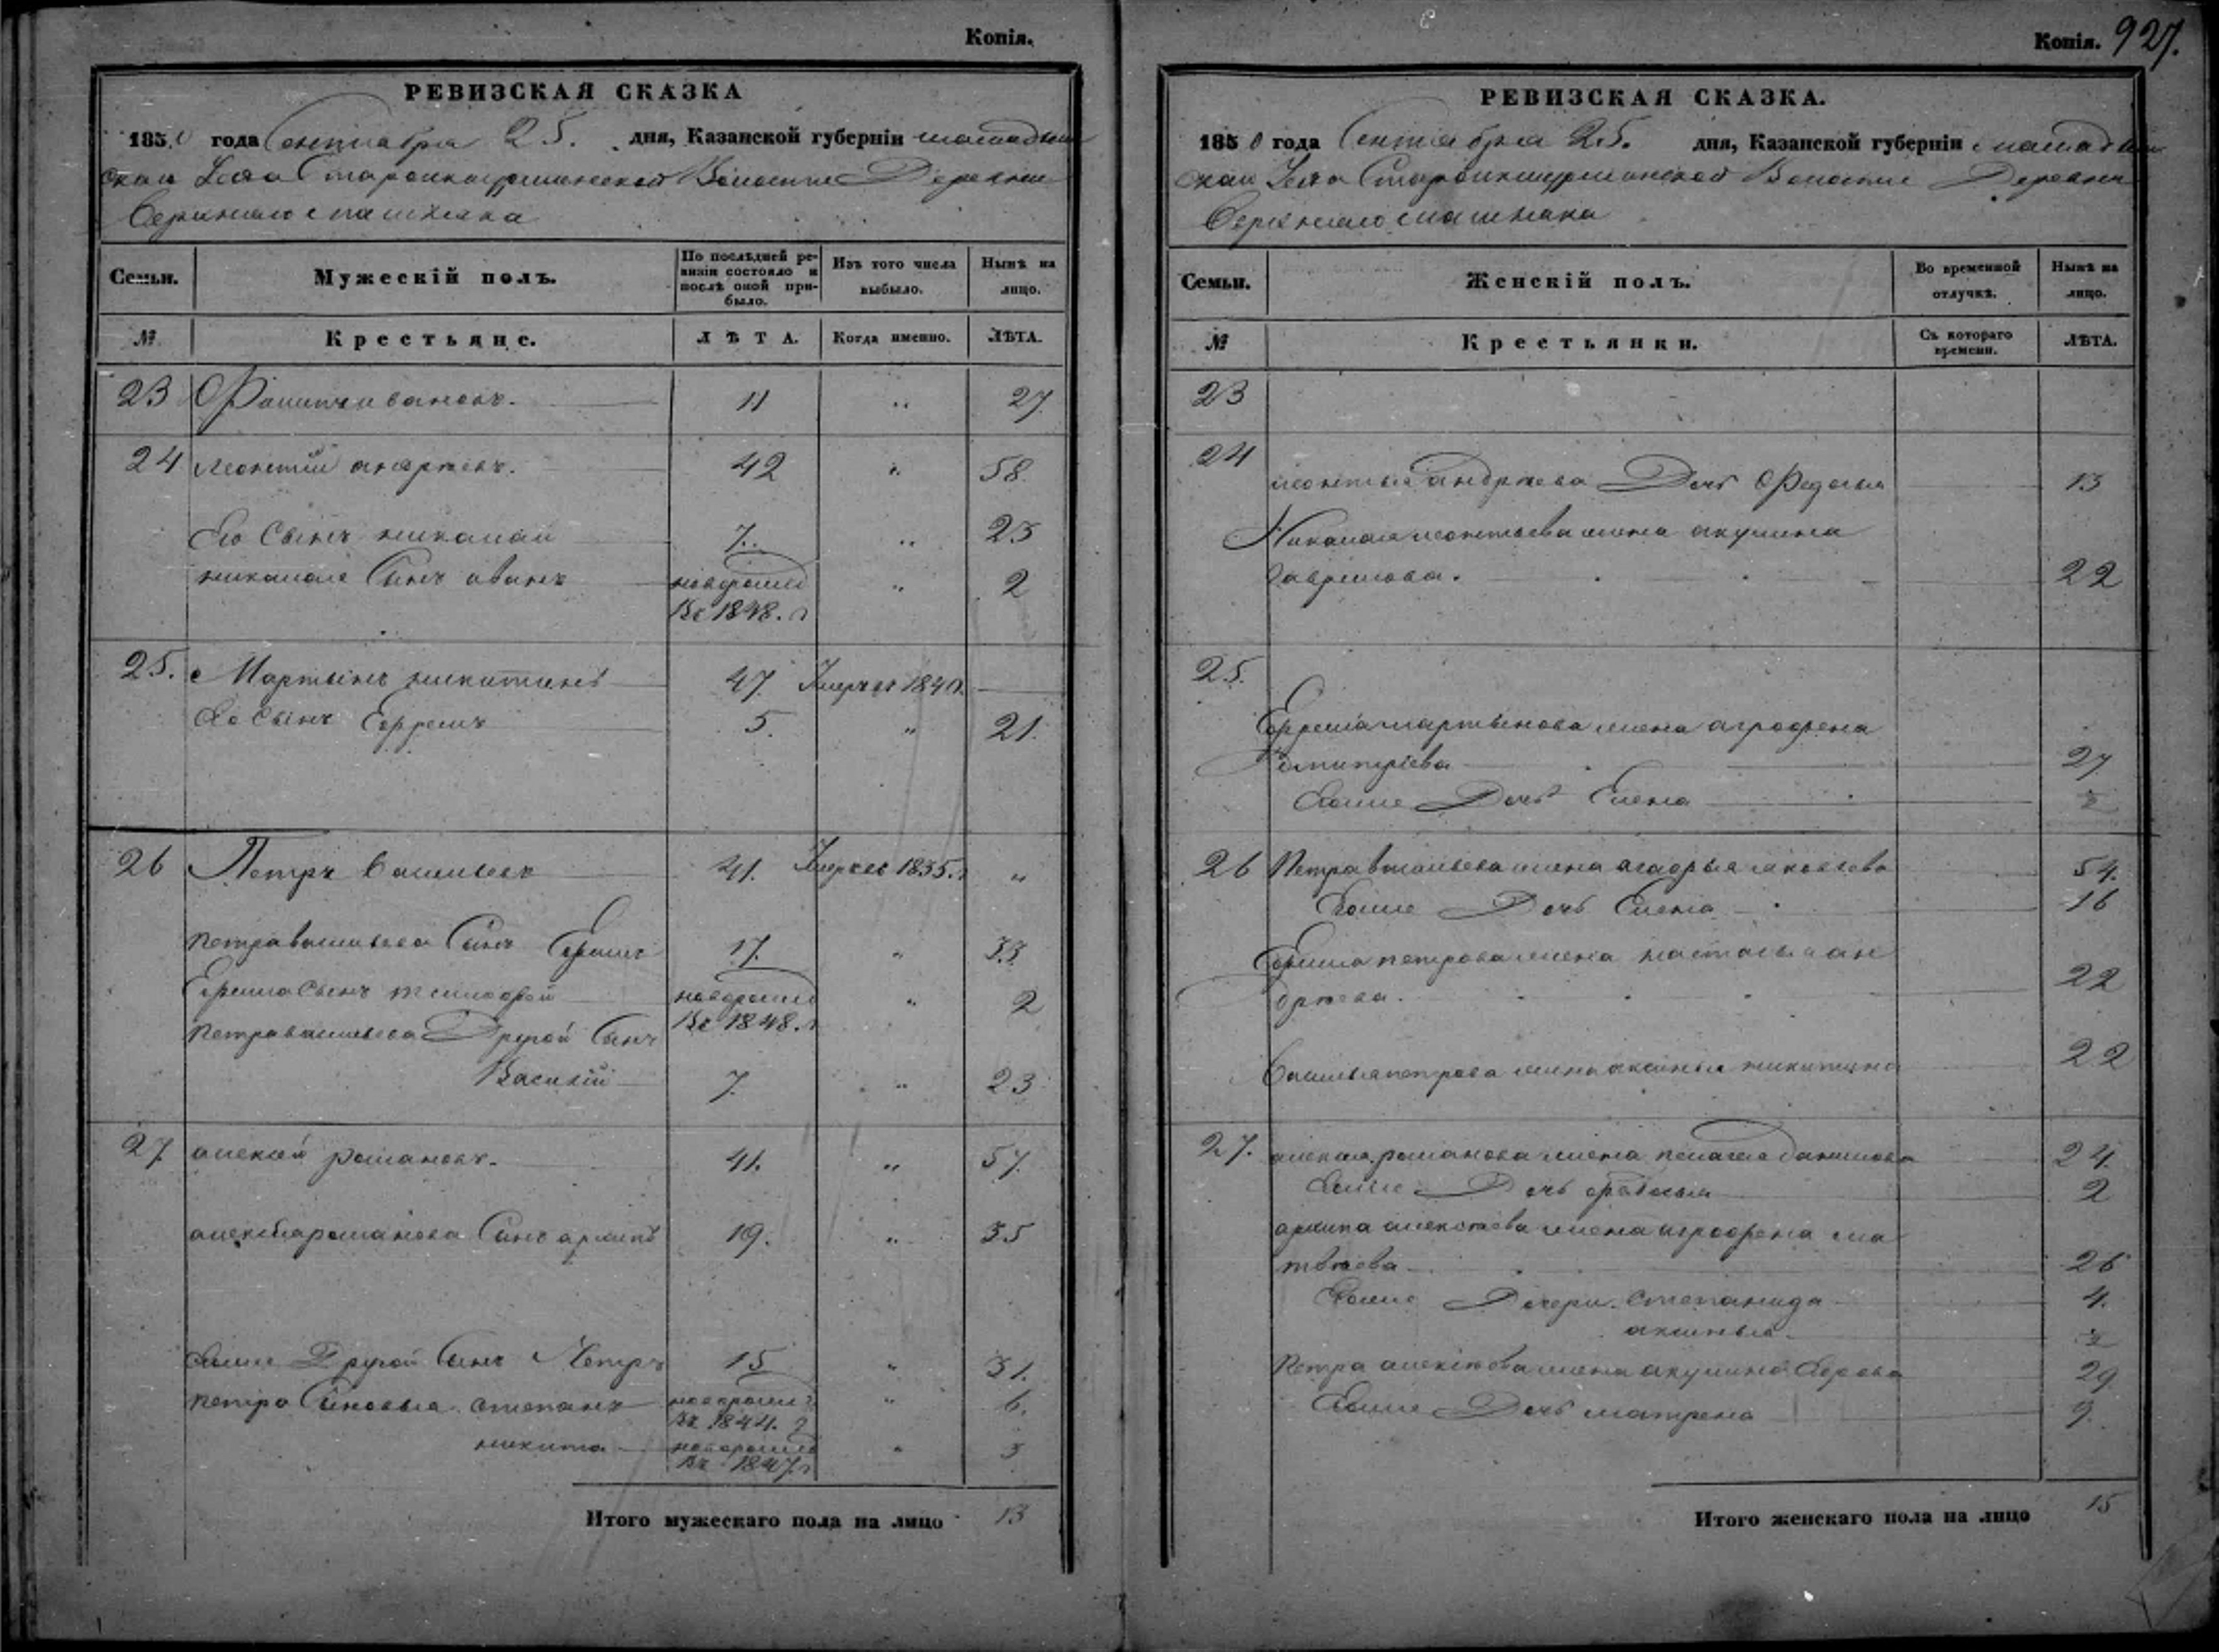 Копія.
РЕВИЗСКАЯ СКАЗКА
1850 года Сентября 25. дня, Казанской губерніи
Волости Деревни
Семьи. Мужескій полъ. По послѣдней ре-
визіи состояло и
послѣ оной при-
было. Изъ того числа
выбыло. Нынѣ на
лицо.
№ Крестьяне. ЛѢТА. Когда именно. ЛѢТА.
23 Филипъ ивановъ. 11 " 27
24 леонтій 42 " 58.
Его Сынъ николай 7. " 23
николая Сынъ иванъ новорожд " 2
Въ 1848. г
25. Мартынъ никитинъ 47. Умеръ въ 1840.
Его Сынъ Ефремъ 5. " 21.
26 Петръ васильевъ 41. Умеръ въ 1835. г "
петра васильева Сынъ Ефимъ 17. " 33
Ефима Сынъ тимофей новорожд " 2
Въ 1848. г
петра васильева Другой Сынъ
Василій 7. " 23
27 алексей романовъ. 41. " 57.
алексея романова Сынъ архипъ 19. " 35
Другой Сынъ Петръ 15 " 31.
петра Сыновья степанъ новорожд " 6.
Въ 1844. г
никита новорожд " 3
Въ 1847. г
Итого мужескаго пола на лицо 13
Копія. 927.
РЕВИЗСКАЯ СКАЗКА.
1850 года Сентября 25. дня, Казанской губерніи
Волости Деревни
Семьи. Женскій полъ. Во временной
отлучкѣ. Нынѣ на
лицо.
№ Крестьянки. Съ котораго
времени. ЛѢТА.
23
24
леонтья андреева Дочь Федосья 13
Николая леонтьева жена акулина
гаврилова. 22
25.
Ефрема мартынова жена аграфена
дмитріева 27
Дочь Елена
26 Петра васильева жена агафья яковлева 54.
Дочь Елена 16
Ефима петрова жена настасья ан
дреева. 22
Василья петрова жена аксинья никитина 22
27. алексея романова жена пелагея данилова 24.
Дочь федосья 2
архипа алексеева жена аграфена ма
твеева 26
Дочери степанида 4.
аксинья
Петра алексеева жена акулина 29
Дочь матрена 9.
Итого женскаго пола на лицо 15